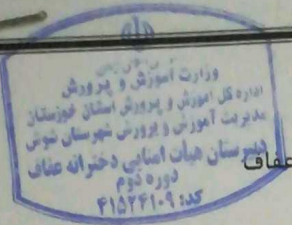 وزارت آموزش و پرورش
اداره کل آموزش و پرورش استان خوزستان
مدیریت آموزش و پرورش شهرستان شوش
دبیرستان هیات امنایی دخترانه عفاف
دوره دوم
کد: ۴۱۵۲۴۱۰۹
عفاف